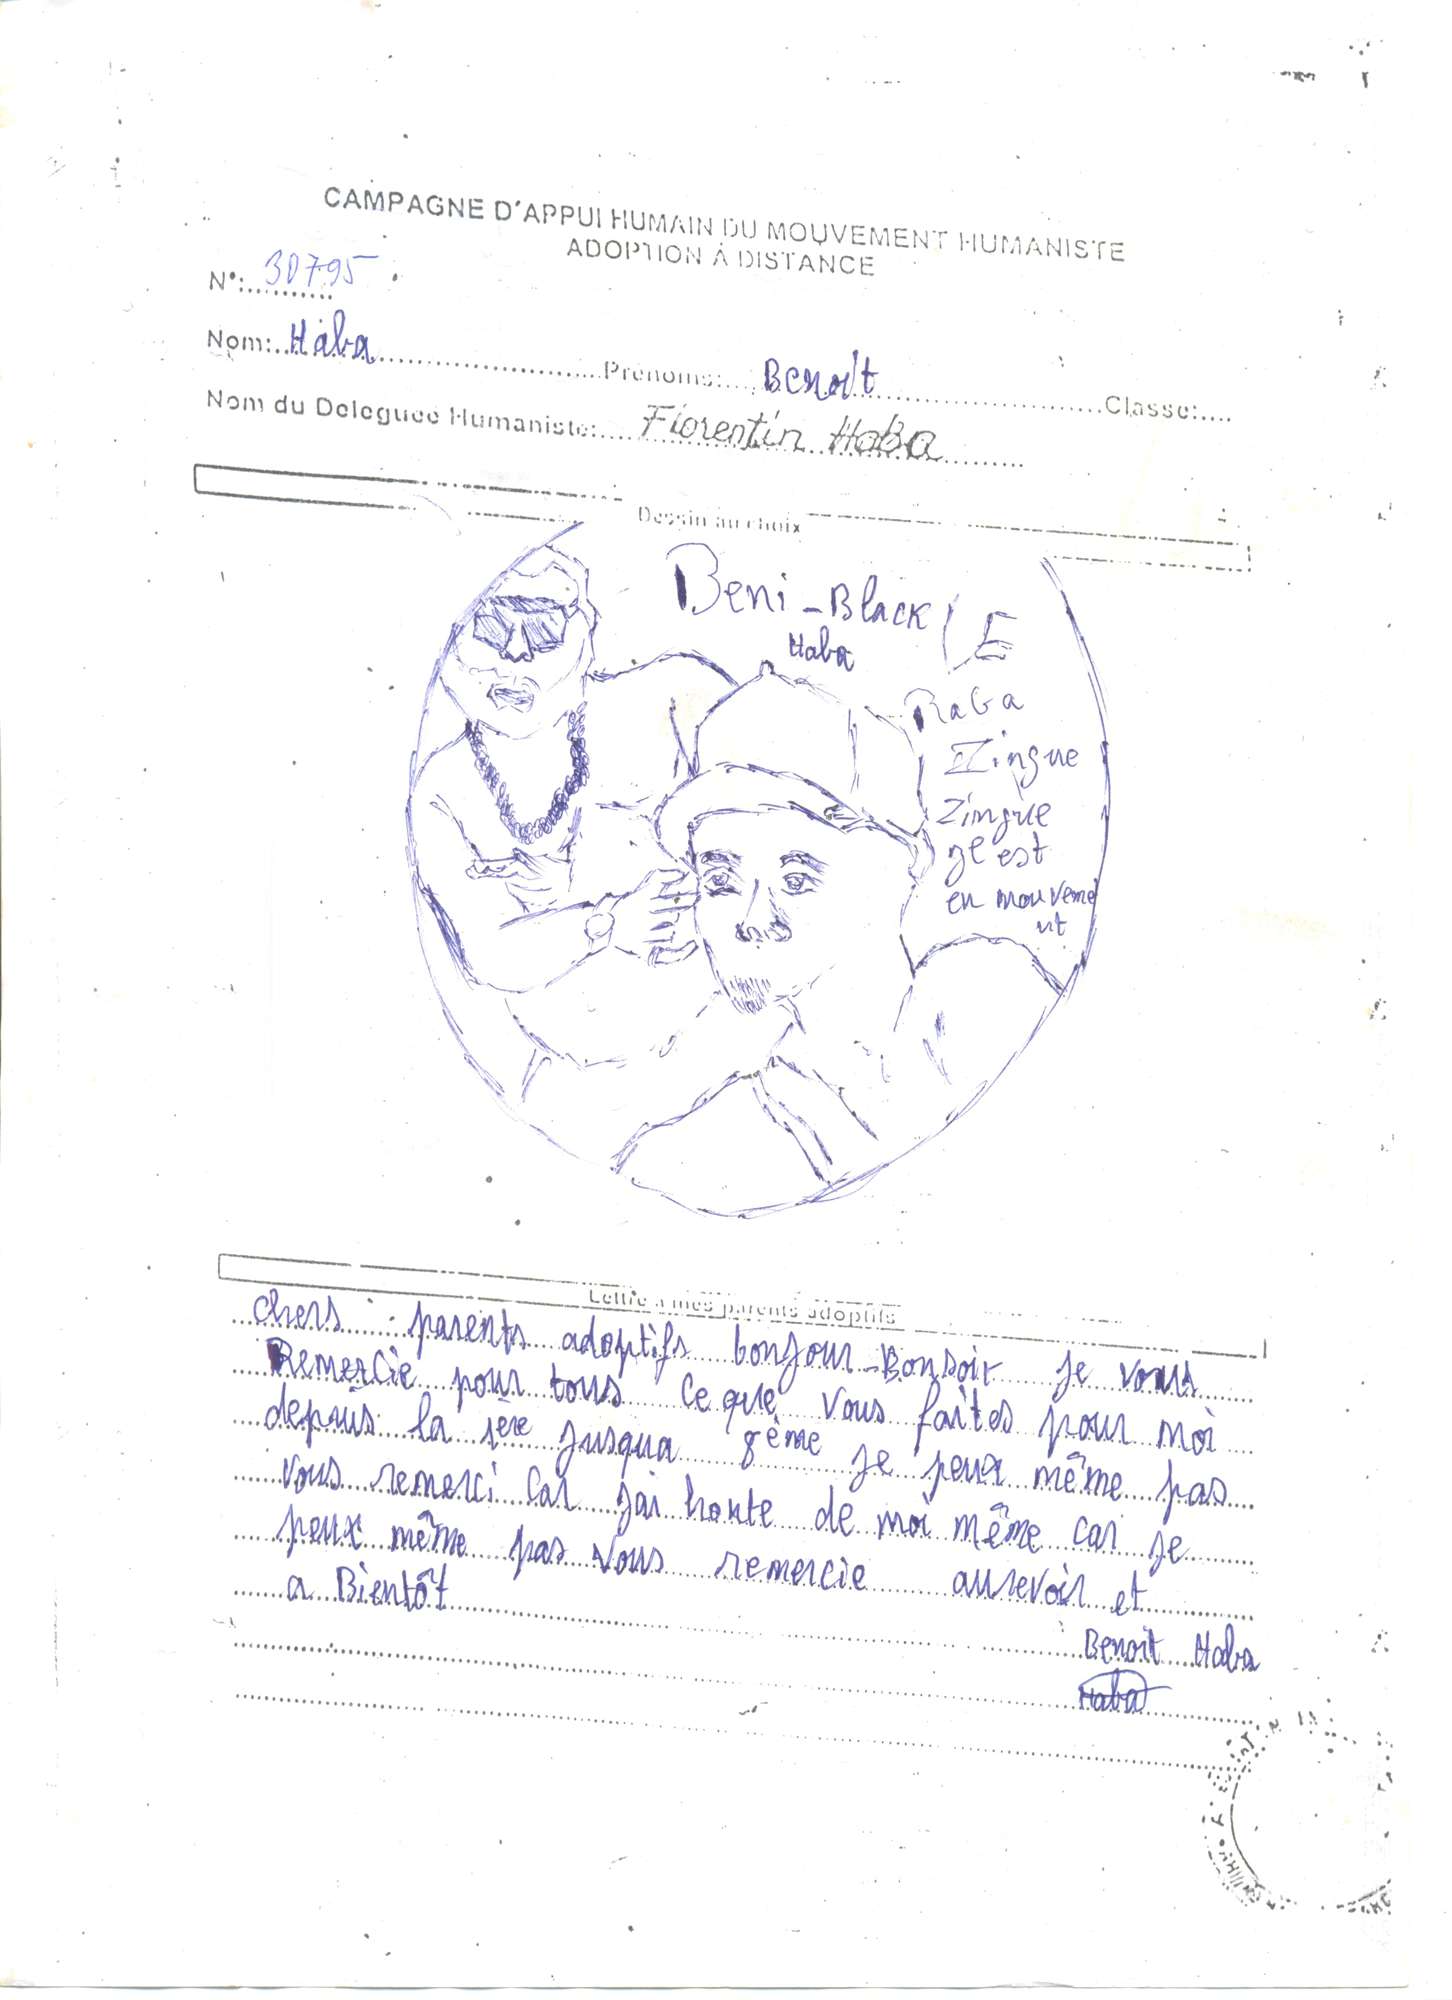 CAMPAGNE D'APPUI HUMAIN DU MOUVEMENT HUMANISTE
ADOPTION À DISTANCE
N°: 30795
Nom: Haba Prénoms: Benoît Classe:
Nom du Déleguée Humaniste: Florentin Haba
Dessin au choix
Beni - Black
Haba
LE
Raba
Zingue
Zingue
Je est
en mouveme
nt
Lettre à mes parents adoptifs
chers parents adoptifs bonjour - Bonsoir je vous
Remercie pour tous ce que vous faites pour moi
depuis la 1ère jusqua 8ème je peux même pas
vous remerci car jai honte de moi même car je
peux même pas vous remercie aurevoir et
a Bientôt
Benoit Haba
Haba